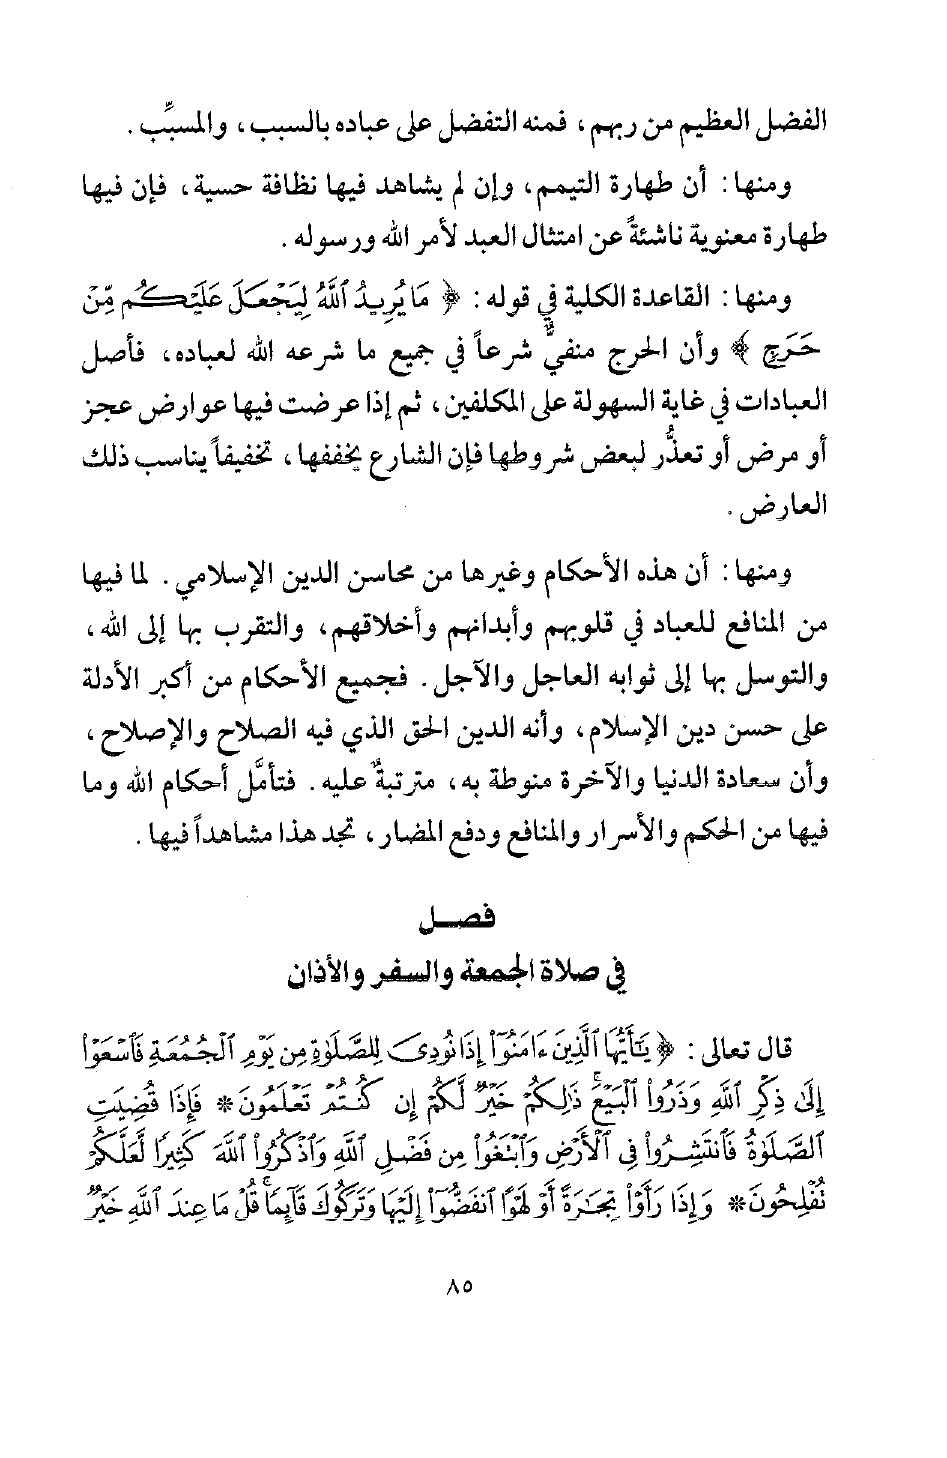 الفضل العظيم من ربهم، فمنه التفضل على عباده بالسبب، والمسبَّب.
ومنها: أن طهارة التيمم، وإن لم يشاهد فيها نظافة حسية، فإن فيها
طهارة معنوية ناشئةً عن امتثال العبد لأمر الله ورسوله.
ومنها: القاعدة الكلية في قوله: ﴿ مَا يُرِيدُ ٱللَّهُ لِيَجْعَلَ عَلَيْكُم مِّنْ
حَرَجٍ ﴾ وأن الحرج منفيٌّ شرعاً في جميع ما شرعه الله لعباده، فأصل
العبادات في غاية السهولة على المكلفين، ثم إذا عرضت فيها عوارض عجز
أو مرض أو تعذُّر لبعض شروطها فإن الشارع يخففها، تخفيفاً يناسب ذلك
العارض.
ومنها: أن هذه الأحكام وغيرها من محاسن الدين الإسلامي. لما فيها
من المنافع للعباد في قلوبهم وأبدانهم وأخلاقهم، والتقرب بها إلى الله،
والتوسل بها إلى ثوابه العاجل والآجل. فجميع الأحكام من أكبر الأدلة
على حسن دين الإسلام، وأنه الدين الحق الذي فيه الصلاح والإصلاح،
وأن سعادة الدنيا والآخرة منوطة به، مترتبةٌ عليه. فتأمَّل أحكام الله وما
فيها من الحكم والأسرار والمنافع ودفع المضار، تجد هذا مشاهداً فيها.
فصــل
في صلاة الجمعة والسفر والأذان
قال تعالى: ﴿ يَـٰٓأَيُّهَا ٱلَّذِينَ ءَامَنُوٓا۟ إِذَا نُودِىَ لِلصَّلَوٰةِ مِن يَوْمِ ٱلْجُمُعَةِ فَٱسْعَوْا۟
إِلَىٰ ذِكْرِ ٱللَّهِ وَذَرُوا۟ ٱلْبَيْعَ ۚ ذَٰلِكُمْ خَيْرٌ لَّكُمْ إِن كُنتُمْ تَعْلَمُونَ * فَإِذَا قُضِيَتِ
ٱلصَّلَوٰةُ فَٱنتَشِرُوا۟ فِى ٱلْأَرْضِ وَٱبْتَغُوا۟ مِن فَضْلِ ٱللَّهِ وَٱذْكُرُوا۟ ٱللَّهَ كَثِيرًا لَّعَلَّكُمْ
تُفْلِحُونَ * وَإِذَا رَأَوْا۟ تِجَـٰرَةً أَوْ لَهْوًا ٱنفَضُّوٓا۟ إِلَيْهَا وَتَرَكُوكَ قَآئِمًا ۚ قُلْ مَا عِندَ ٱللَّهِ خَيْرٌ
٨٥